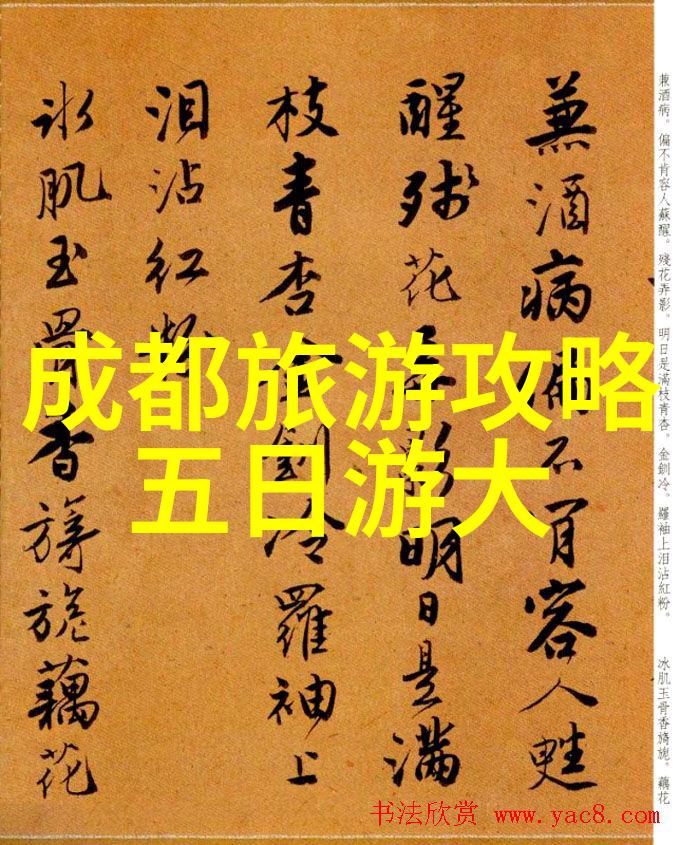 成都旅游攻略
五日游大
兼酒病偏不肯容人甦
醒殘花弄影明日是滿
枝青杏金釧冷羅袖上
泪沾红粉
冰肌玉骨香旖旎藕花
兼酒病。偏不肯容人蘇醒。殘花弄影。明日是滿枝青杏。金釧冷。羅袖上泪沾紅粉。
冰肌玉骨香旖旎。藕花
书法欣赏 www.yac8.com